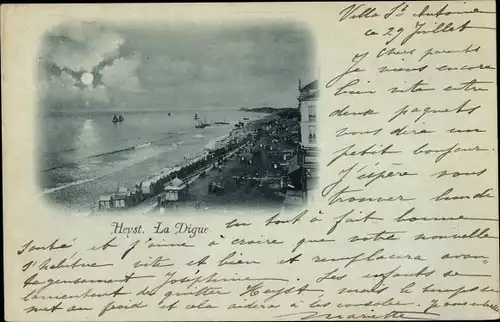 Villa St Antoine
ce 29 Juillet
Chers parents
Je viens encore
bien vite entre
deux paquets
vous dire un
petit bonjour.
J'espère vous
trouver lundi
en tout à fait bonne
Heyst. La Digue
santé et j'aime à croire que votre nouvelle
s'habitue vite et bien et remplacera avan-
tageusement Joséphine. Les enfants se
lamentent de quitter Heyst mais le temps se
met au froid et cela aidera à les consoler. Je vous
Mariette